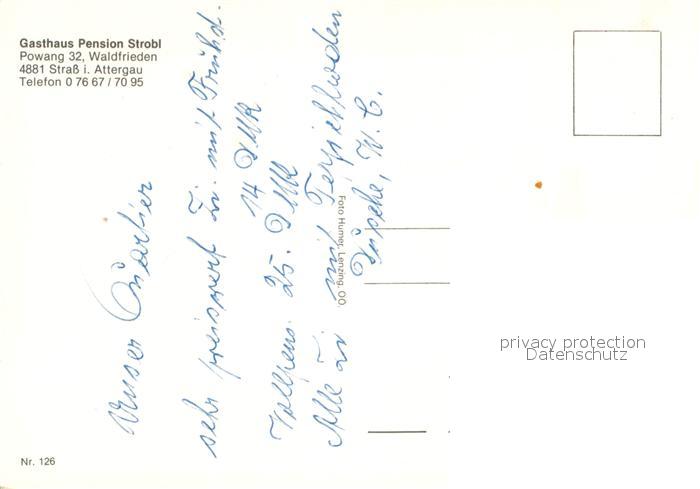 Gasthaus Pension Strobl
Powang 32, Waldfrieden
4881 Straß i. Attergau
Telefon 0 76 67 / 70 95
Unser Quartier
sehr preiswert Zi. mit Frühst.
14 DMk
Vollpens. 25. DMk
Alle Zi mit Teppichboden
Dusche, W. C.
Foto Humer, Lenzing, OÖ.
privacy protection
Datenschutz
Nr. 126